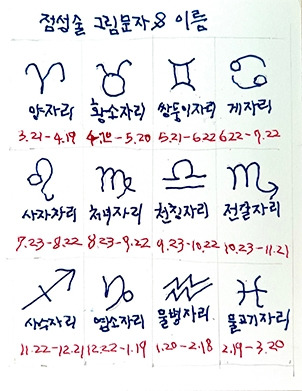 점섭술 그림문자 & 이름
양자리 황소자리 쌍둥이자리 게자리
3.21-4.19 4.20-5.20 5.21-6.22 6.22-7.22
사자자리 처녀자리 천칭자리 전갈자리
7.23-8.22 8.23-9.22 9.23-10.22 10.23-11.21
사수자리 염소자리 물병자리 물고기자리
11.22-12.21 12.22-1.19 1.20-2.18 2.19-3.20